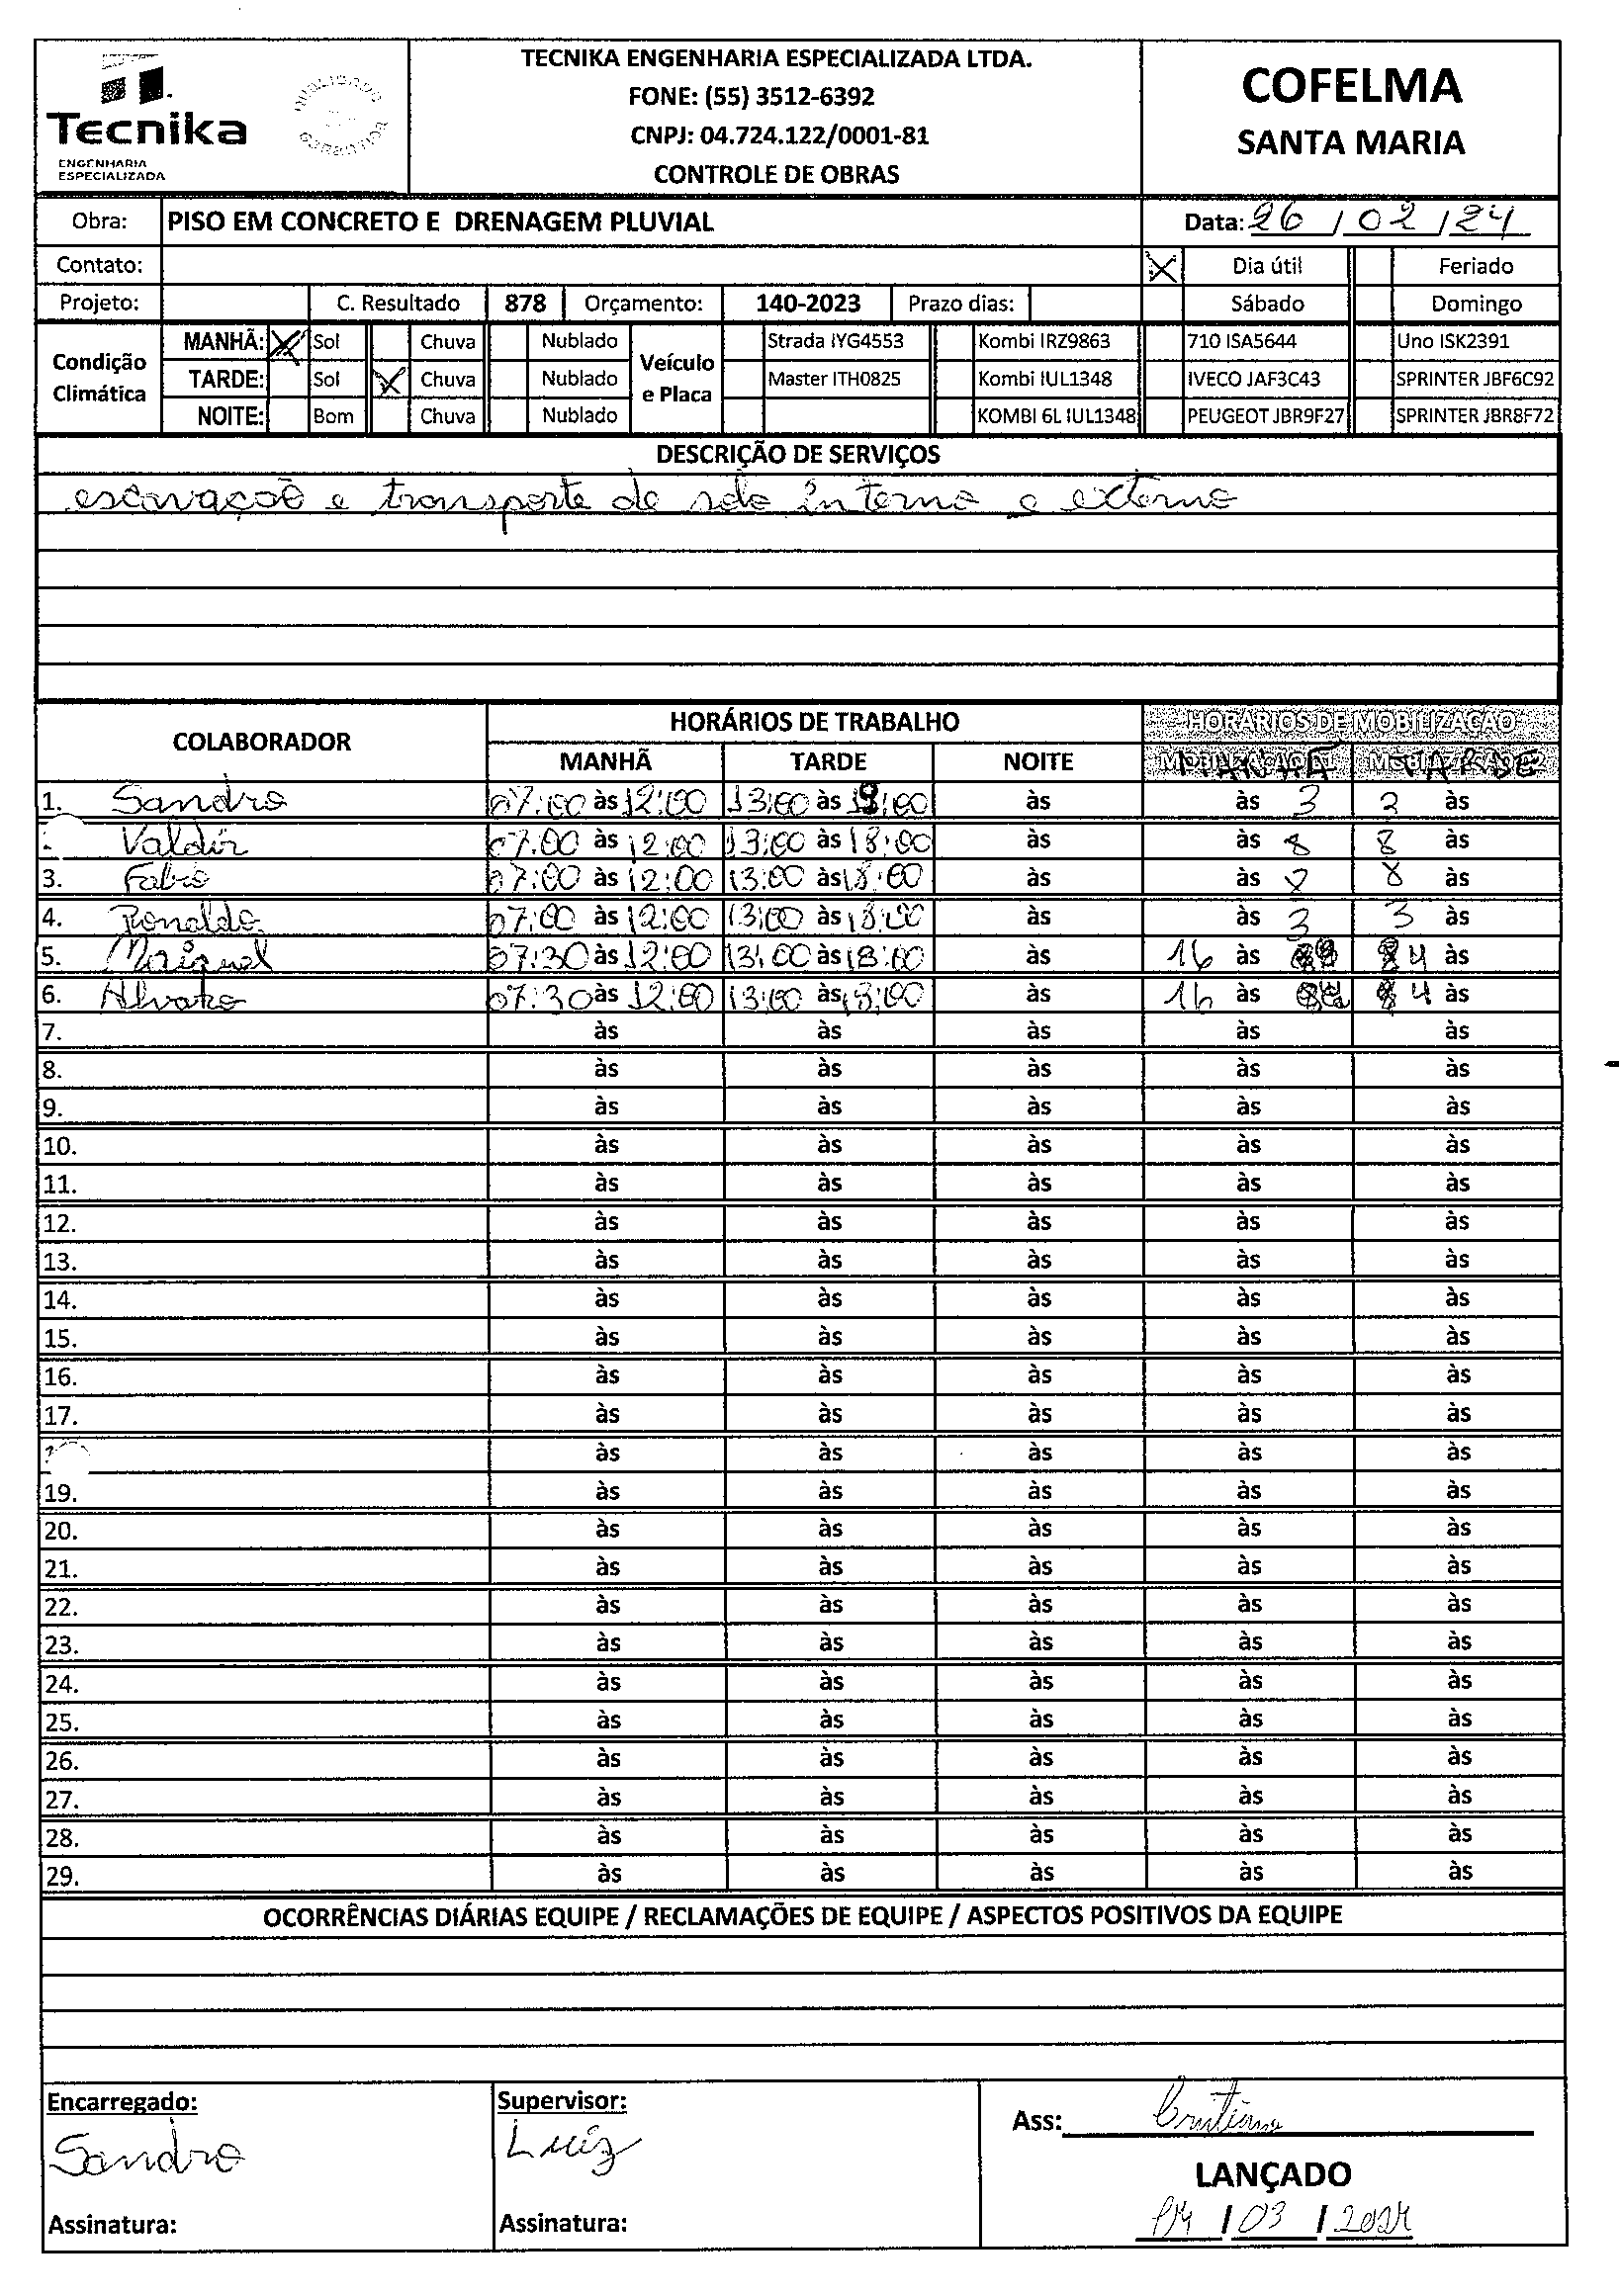 Tecnika
ENGENHARIA
ESPECIALIZADA
TECNIKA ENGENHARIA ESPECIALIZADA LTDA.
FONE: (55) 3512-6392
CNPJ: 04.724.122/0001-81
CONTROLE DE OBRAS
COFELMA
SANTA MARIA
Obra: PISO EM CONCRETO E DRENAGEM PLUVIAL Data: 26 / 02 / 24
Contato: X Dia útil Feriado
Projeto: C. Resultado 878 Orçamento: 140-2023 Prazo dias: Sábado Domingo
Condição Climática
MANHÃ: X Sol Chuva Nublado
TARDE: Sol X Chuva Nublado
NOITE: Bom Chuva Nublado
Veículo e Placa
Strada IYG4553 Kombi IRZ9863 710 ISA5644 Uno ISK2391
Master ITH0825 Kombi IUL1348 IVECO JAF3C43 SPRINTER JBF6C92
KOMBI 6L IUL1348 PEUGEOT JBR9F27 SPRINTER JBR8F72
DESCRIÇÃO DE SERVIÇOS
escavação e transporte de solo interno e externo
COLABORADOR HORÁRIOS DE TRABALHO HORÁRIOS DE MOBILIZAÇÃO
MANHÃ TARDE NOITE MANHÃ TARDE
1. Sandro 07:00 às 12:00 13:00 às 18:00 às às 3 3 às
Valdir 07:00 às 12:00 13:00 às 18:00 às às 8 8 às
3. Fabio 07:00 às 12:00 13:00 às 18:00 às às 8 8 às
4. Ronaldo 07:00 às 12:00 13:00 às 18:00 às às 3 3 às
5. 07:30 às 12:00 13:00 às 18:00 às 16 às 4 às
6. Alvaro 07:30 às 12:00 13:00 às 18:00 às 16 às 4 às
7. às às às às às
8. às às às às às
9. às às às às às
10. às às às às às
11. às às às às às
12. às às às às às
13. às às às às às
14. às às às às às
15. às às às às às
16. às às às às às
17. às às às às às
às às às às às
19. às às às às às
20. às às às às às
21. às às às às às
22. às às às às às
23. às às às às às
24. às às às às às
25. às às às às às
26. às às às às às
27. às às às às às
28. às às às às às
29. às às às às às
OCORRÊNCIAS DIÁRIAS EQUIPE / RECLAMAÇÕES DE EQUIPE / ASPECTOS POSITIVOS DA EQUIPE
Encarregado:
Sandro
Assinatura:
Supervisor:
Luiz
Assinatura:
Ass:
LANÇADO
/ 03 / 2024